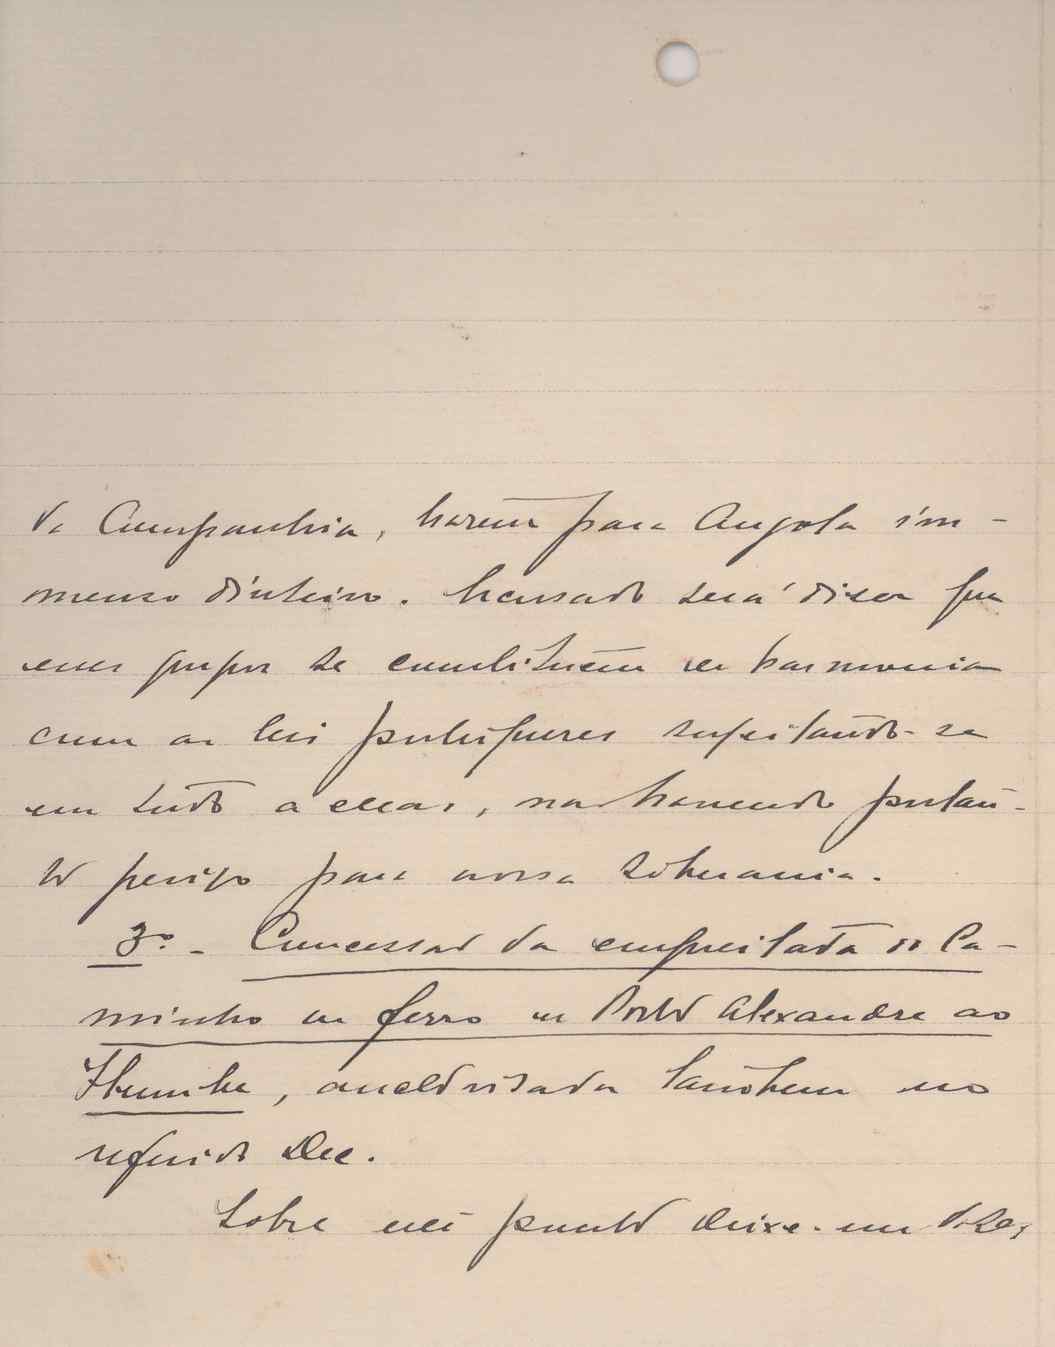 da Companhia, trazem para Angola im-
menso dinheiro. Escusado será dizer que
esses grupos se constituem em harmonia
com as leis portuguesas sujeitando-se
em tudo a ellas, não havendo portan-
to perigo para nossa soberania.
3º - Concessão da empreitada do Ca-
minho de ferro de Porto Alexandre ao
Humbe, auctorisada tambem no
referido Dec.
Sobre este ponto deixe-me dizer